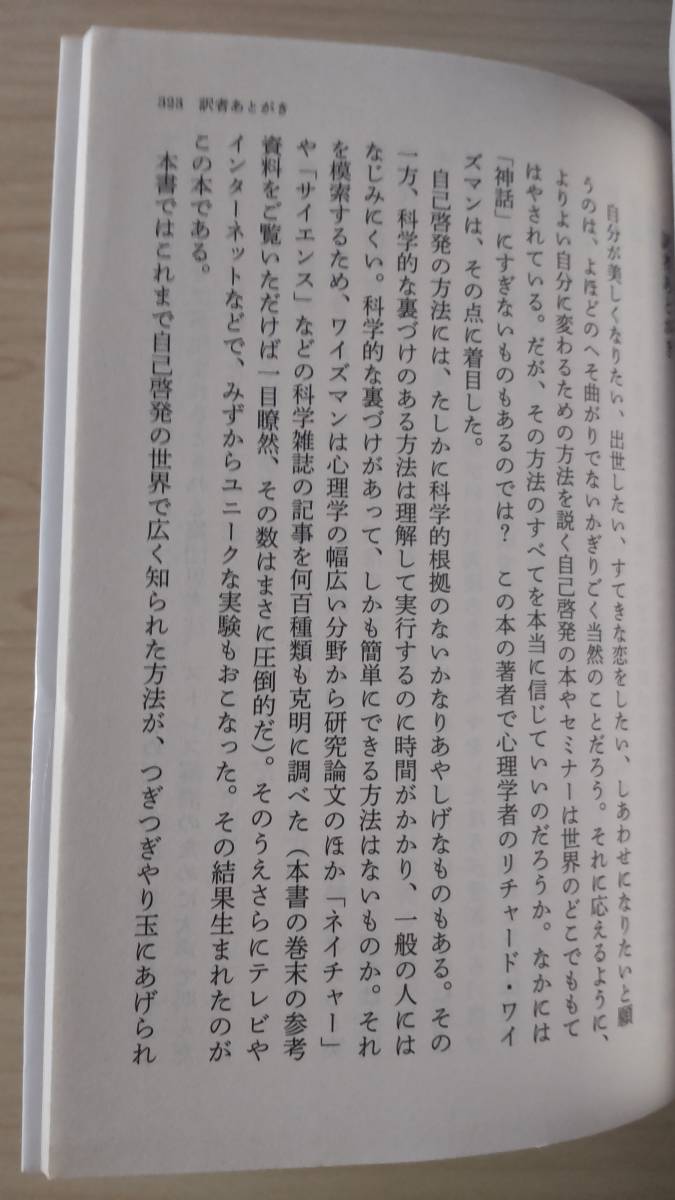 323 訳者あとがき
自分が美しくなりたい、出世したい、すてきな恋をしたい、しあわせになりたいと願
うのは、よほどのへそ曲がりでないかぎりごく当然のことだろう。それに応えるように、
よりよい自分に変わるための方法を説く自己啓発の本やセミナーは世界のどこでももて
はやされている。だが、その方法のすべてを本当に信じていいのだろうか。なかには
「神話」にすぎないものもあるのでは？　この本の著者で心理学者のリチャード・ワイ
ズマンは、その点に着目した。
自己啓発の方法には、たしかに科学的根拠のないかなりあやしげなものもある。その
一方、科学的な裏づけのある方法は理解して実行するのに時間がかかり、一般の人には
なじみにくい。科学的な裏づけがあって、しかも簡単にできる方法はないものか。それ
を模索するため、ワイズマンは心理学の幅広い分野から研究論文のほか「ネイチャー」
や「サイエンス」などの科学雑誌の記事を何百種類も克明に調べた（本書の巻末の参考
資料をご覧いただけば一目瞭然、その数はまさに圧倒的だ）。そのうえさらにテレビや
インターネットなどで、みずからユニークな実験もおこなった。その結果生まれたのが
この本である。
本書ではこれまで自己啓発の世界で広く知られた方法が、つぎつぎやり玉にあげられ